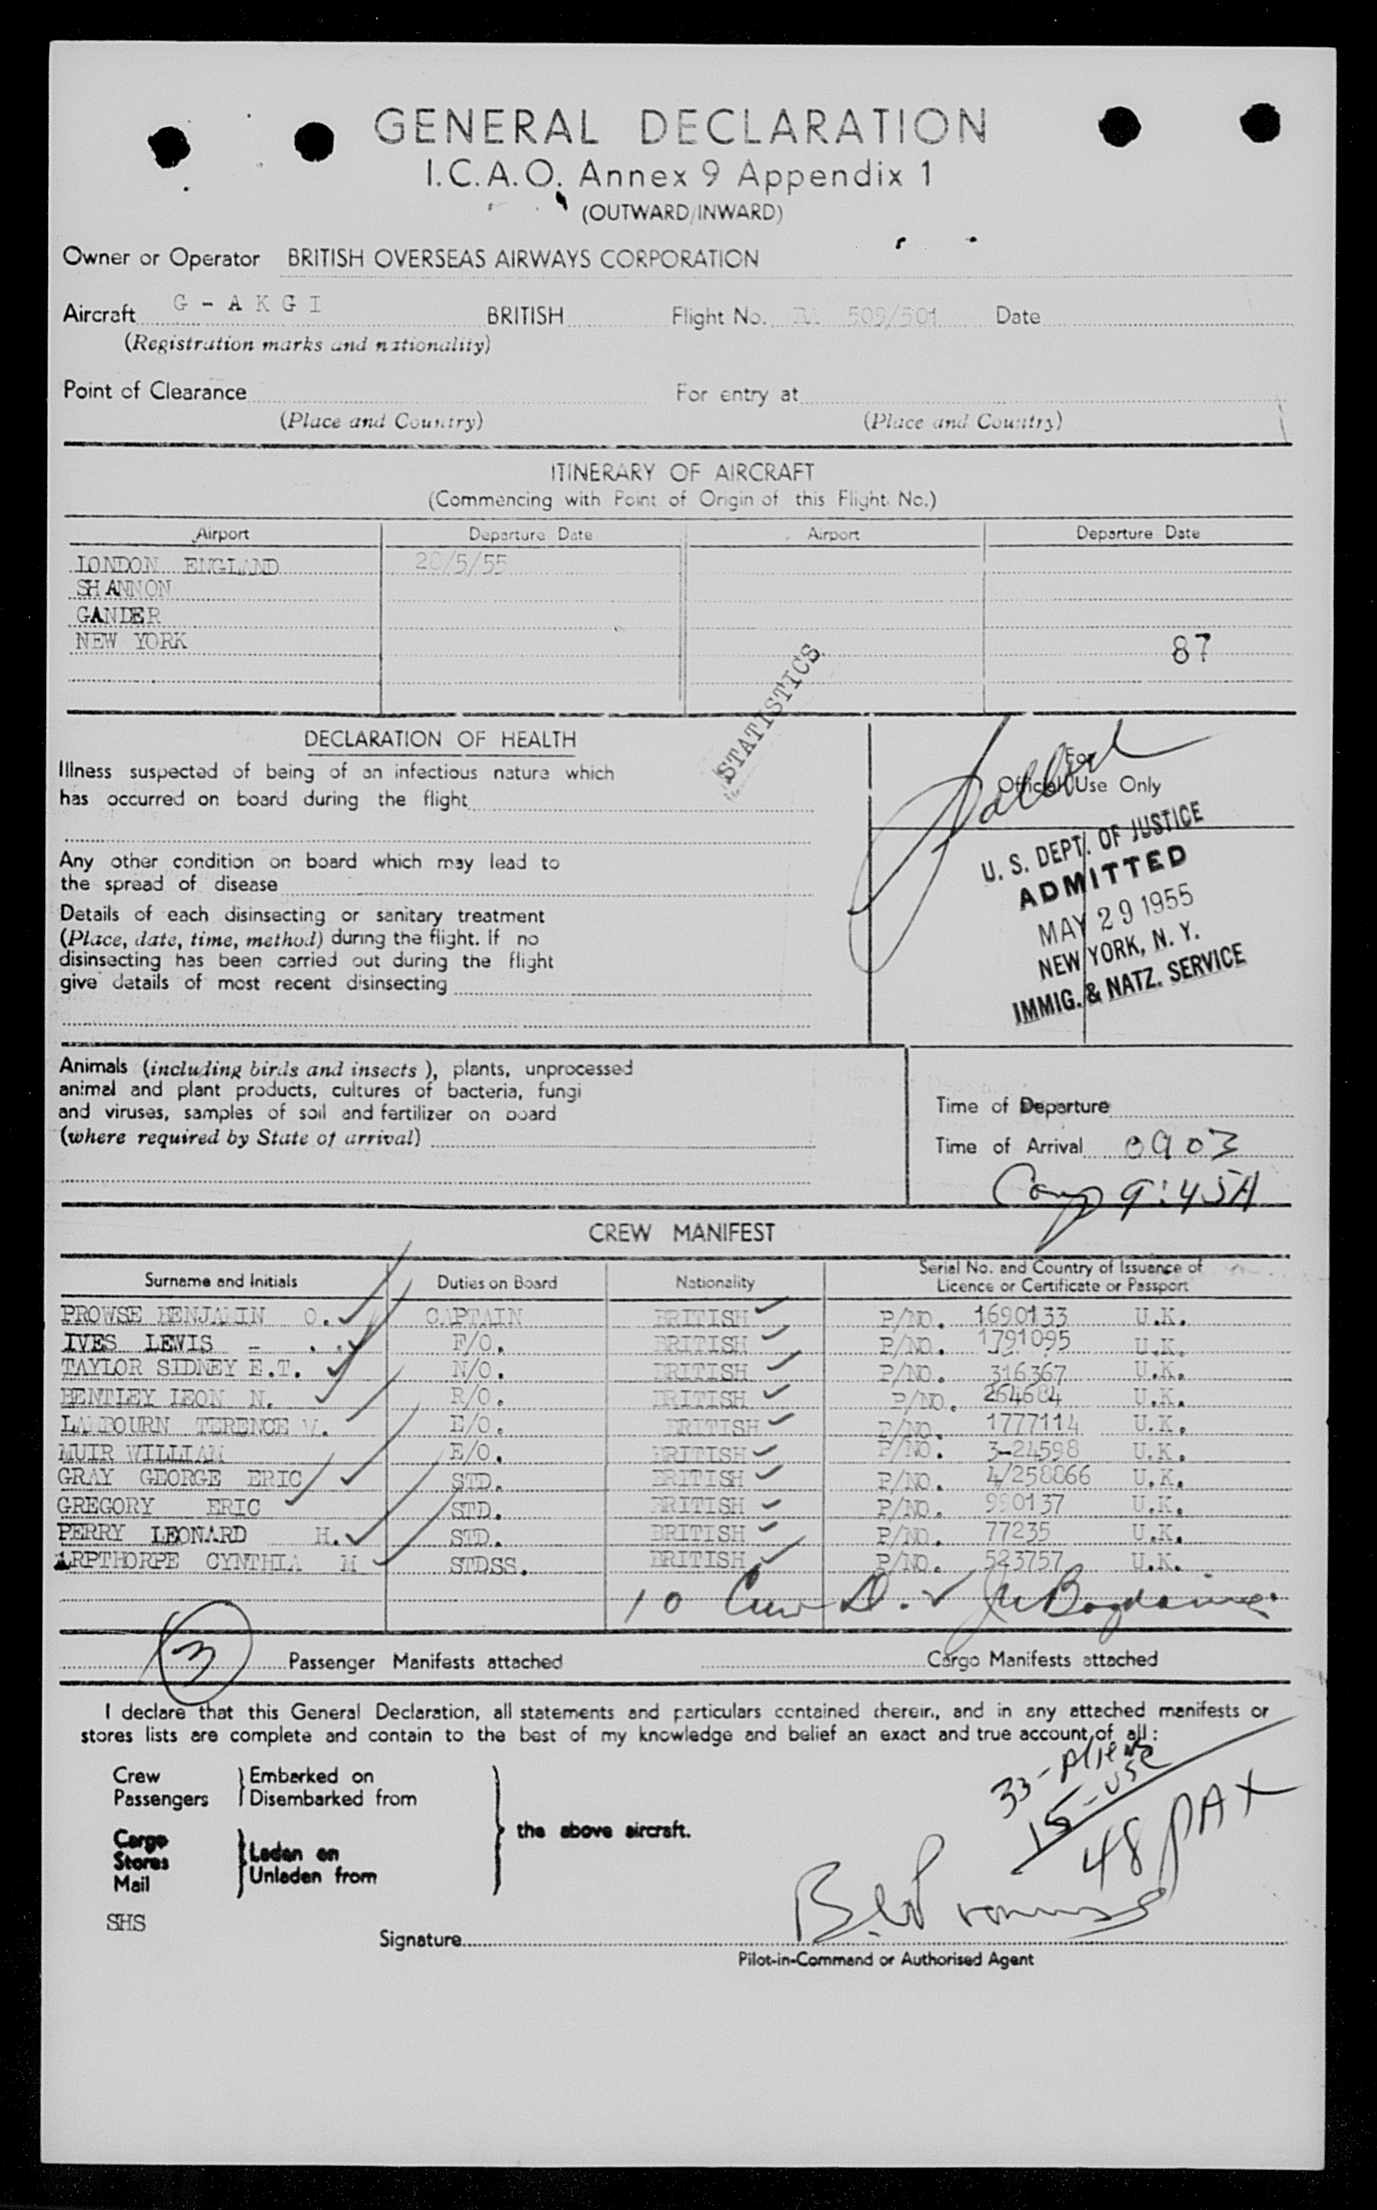 GENERAL DECLARATION
I.C.A.O. Annex 9 Appendix 1
(OUTWARD/INWARD)
Owner or Operator BRITISH OVERSEAS AIRWAYS CORPORATION
Aircraft G - A K G I BRITISH Flight No. BA 509/501 Date
(Registration marks and nationality)
Point of Clearance For entry at
(Place and Country) (Place and Country)
ITINERARY OF AIRCRAFT
(Commencing with Point of Origin of this Flight. No.)
Airport Departure Date Airport Departure Date
LONDON ENGLAND /5/55
SHANNON
GANDER
NEW YORK 87
STATISTICS
DECLARATION OF HEALTH
Illness suspected of being of an infectious nature which
has occurred on board during the flight
Any other condition on board which may lead to
the spread of disease
Details of each disinsecting or sanitary treatment
(Place, date, time, method) during the flight. If no
disinsecting has been carried out during the flight
give details of most recent disinsecting
For
Official Use Only
U. S. DEPT. OF JUSTICE
ADMITTED
MAY 29 1955
NEW YORK, N. Y.
IMMIG. & NATZ. SERVICE
Animals (including birds and insects), plants, unprocessed
animal and plant products, cultures of bacteria, fungi
and viruses, samples of soil and fertilizer on board
(where required by State of arrival)
Time of Departure
Time of Arrival 0903
Comp 9:45A
CREW MANIFEST
Surname and Initials Duties on Board Nationality Serial No. and Country of Issuance of Licence or Certificate or Passport
PROWSE BENJAMIN O. CAPTAIN BRITISH P/NO. 1690133 U.K.
IVES LEWIS - . . F/O. BRITISH P/NO. 1791095 U.K.
TAYLOR SIDNEY E.T. N/O. BRITISH P/NO. 316367 U.K.
BENTLEY LEON N. R/O. BRITISH P/NO. 264684 U.K.
LAMBOURN TERENCE V. E/O. BRITISH P/NO. 1777114 U.K.
MUIR WILLIAM E/O. BRITISH P/NO. 3-24598 U.K.
GRAY GEORGE ERIC STD. BRITISH P/NO. 4/258866 U.K.
GREGORY ERIC STD. BRITISH P/NO. 990137 U.K.
PERRY LEONARD H. STD. BRITISH P/NO. 77235 U.K.
ARPTHORPE CYNTHIA M STDSS. BRITISH P/NO. 523757 U.K.
10 Crew D.
3 Passenger Manifests attached Cargo Manifests attached
I declare that this General Declaration, all statements and particulars contained therein, and in any attached manifests or
stores lists are complete and contain to the best of my knowledge and belief an exact and true account of all :
Crew Embarked on
Passengers Disembarked from
the above aircraft.
Cargo
Stores Laden on
Mail Unladen from
33 - Aliens
15 - USC
48 PAX
SHS
Signature
Pilot-in-Command or Authorised Agent